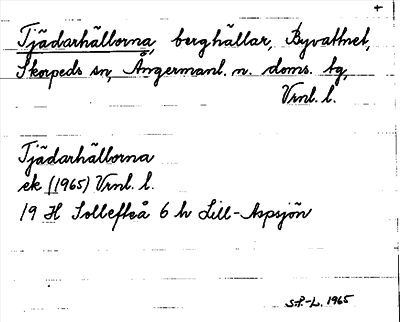 +
Tjädarhällorna, berghällar, Byvattnet,
Skorpeds sn, Ångermanl. n. doms. tg,
Vrnl. l.
Tjädarhällorna
ek (1965) Vrnl. l.
19 H Sollefteå 6 h Lill-Aspsjön
S.P.-L. 1965